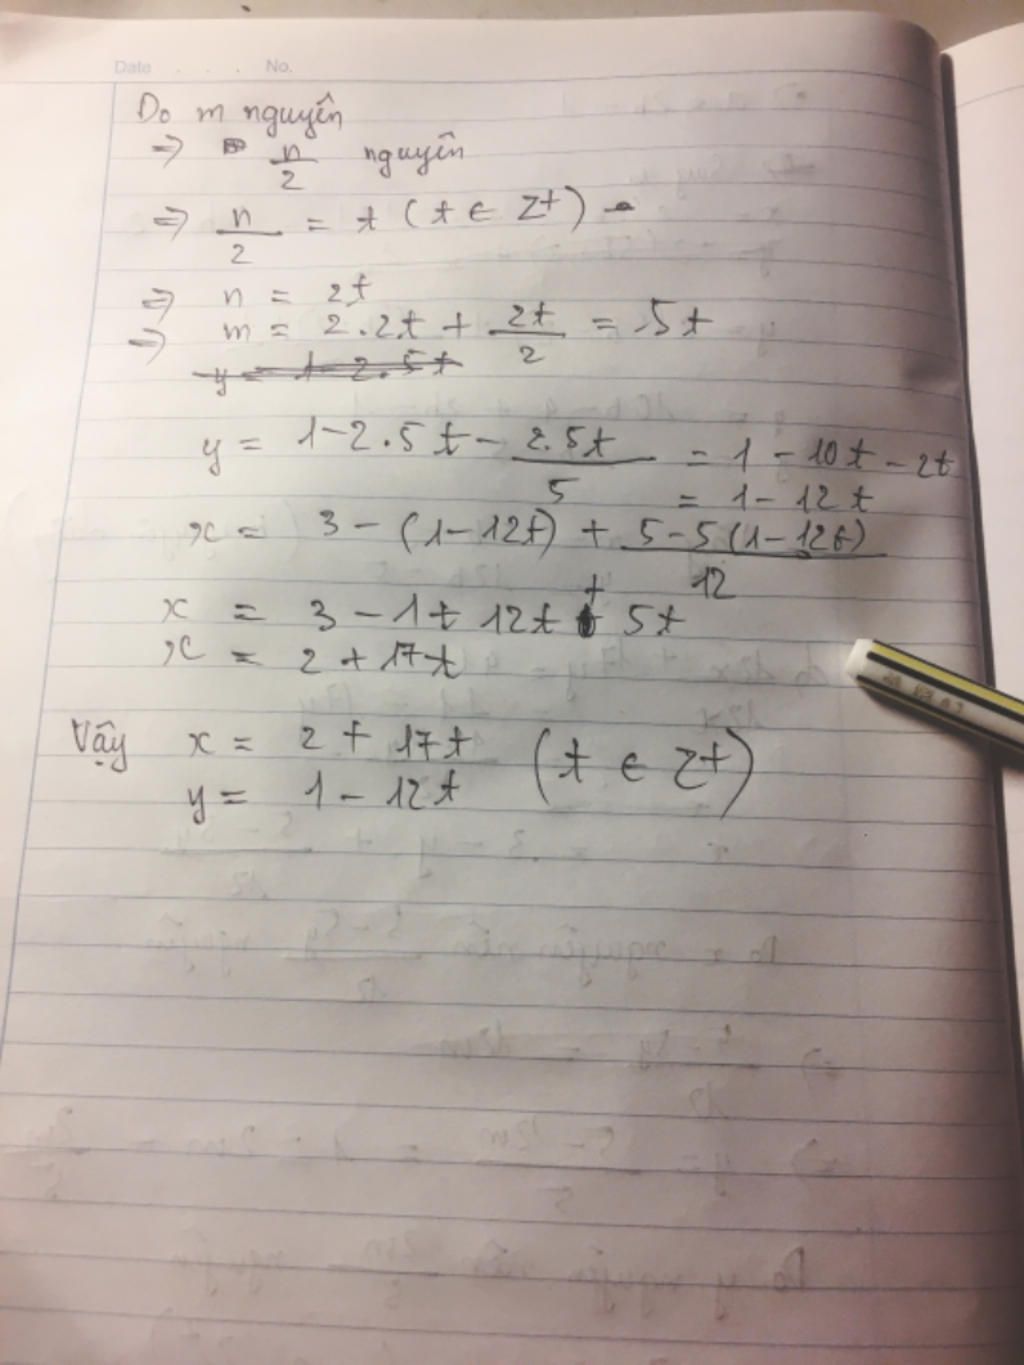 Date . . . No.
Do m nguyên
=> n/2 nguyên
=> n/2 = t (t ∈ Z+)
=> n = 2t
=> m = 2.2t + 2t/2 = 5t
y = 1-2.5t
y = 1-2.5t - 2.5t/5 = 1 - 10t - 2t
= 1 - 12t
x = 3 - (1-12t) + 5-5(1-12t)/12
x = 3 - 1 + 12t + 5t
x = 2 + 17t
Vậy x = 2 + 17t (t ∈ Z+)
y = 1 - 12t